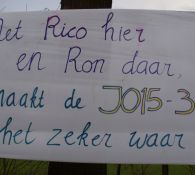 Met Rico hier
en Ron daar,
maakt de JO15-3
het zeker waar